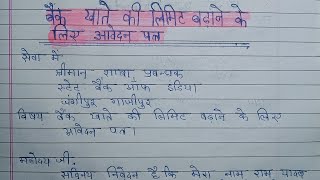 बैंक खाते की लिमिट बढ़ाने के
लिए आवेदन पत्र
सेवा में
श्रीमान शाखा प्रबन्धक
स्टेट बैंक ऑफ इंडिया
जंगीपुर गाजीपुर
विषय बैंक खाते की लिमिट बढ़ाने के लिए
आवेदन पत्र।
महोदय जी,
सविनय निवेदन है कि मेरा नाम राम यादव